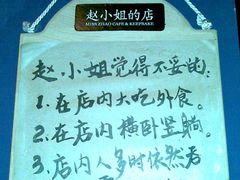 赵小姐的店
MISS ZHAO CAFE & KEEPSAKE
赵小姐觉得不妥的:
1.在店内大吃外食。
2.在店内横卧竖躺。
3.店内人多时依然居